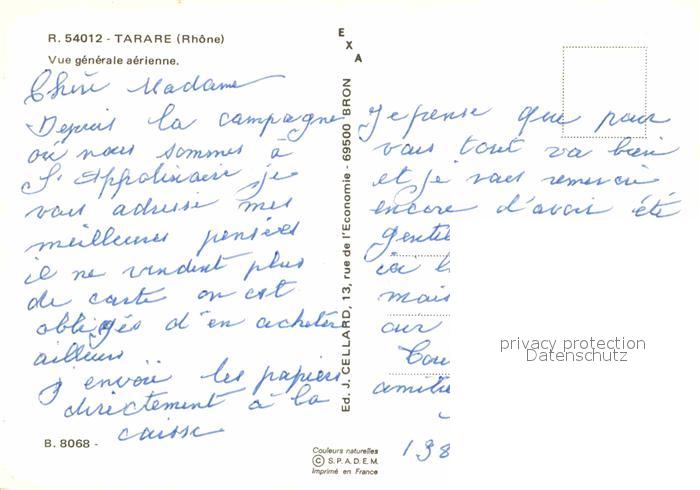 R. 54012 - TARARE (Rhône)
Vue générale aérienne.
Chère Madame
Depuis la campagne
où nous sommes à
St Appolinaire je
vous adresse mes
meilleures pensées
il ne vendent plus
de carte on est
obligés d'en acheter
ailleurs
J'envoie les papiers
directement à la
caisse
B. 8068 -
EXA
Ed. J. CELLARD, 13, rue de l'Economie - 69500 BRON
Je pense que pour
vous tout va bien
et je vous remercie
encore d'avoir été
mais
198
privacy protection
Datenschutz
Couleurs naturelles
© S.P.A.D.E.M.
Imprimé en France